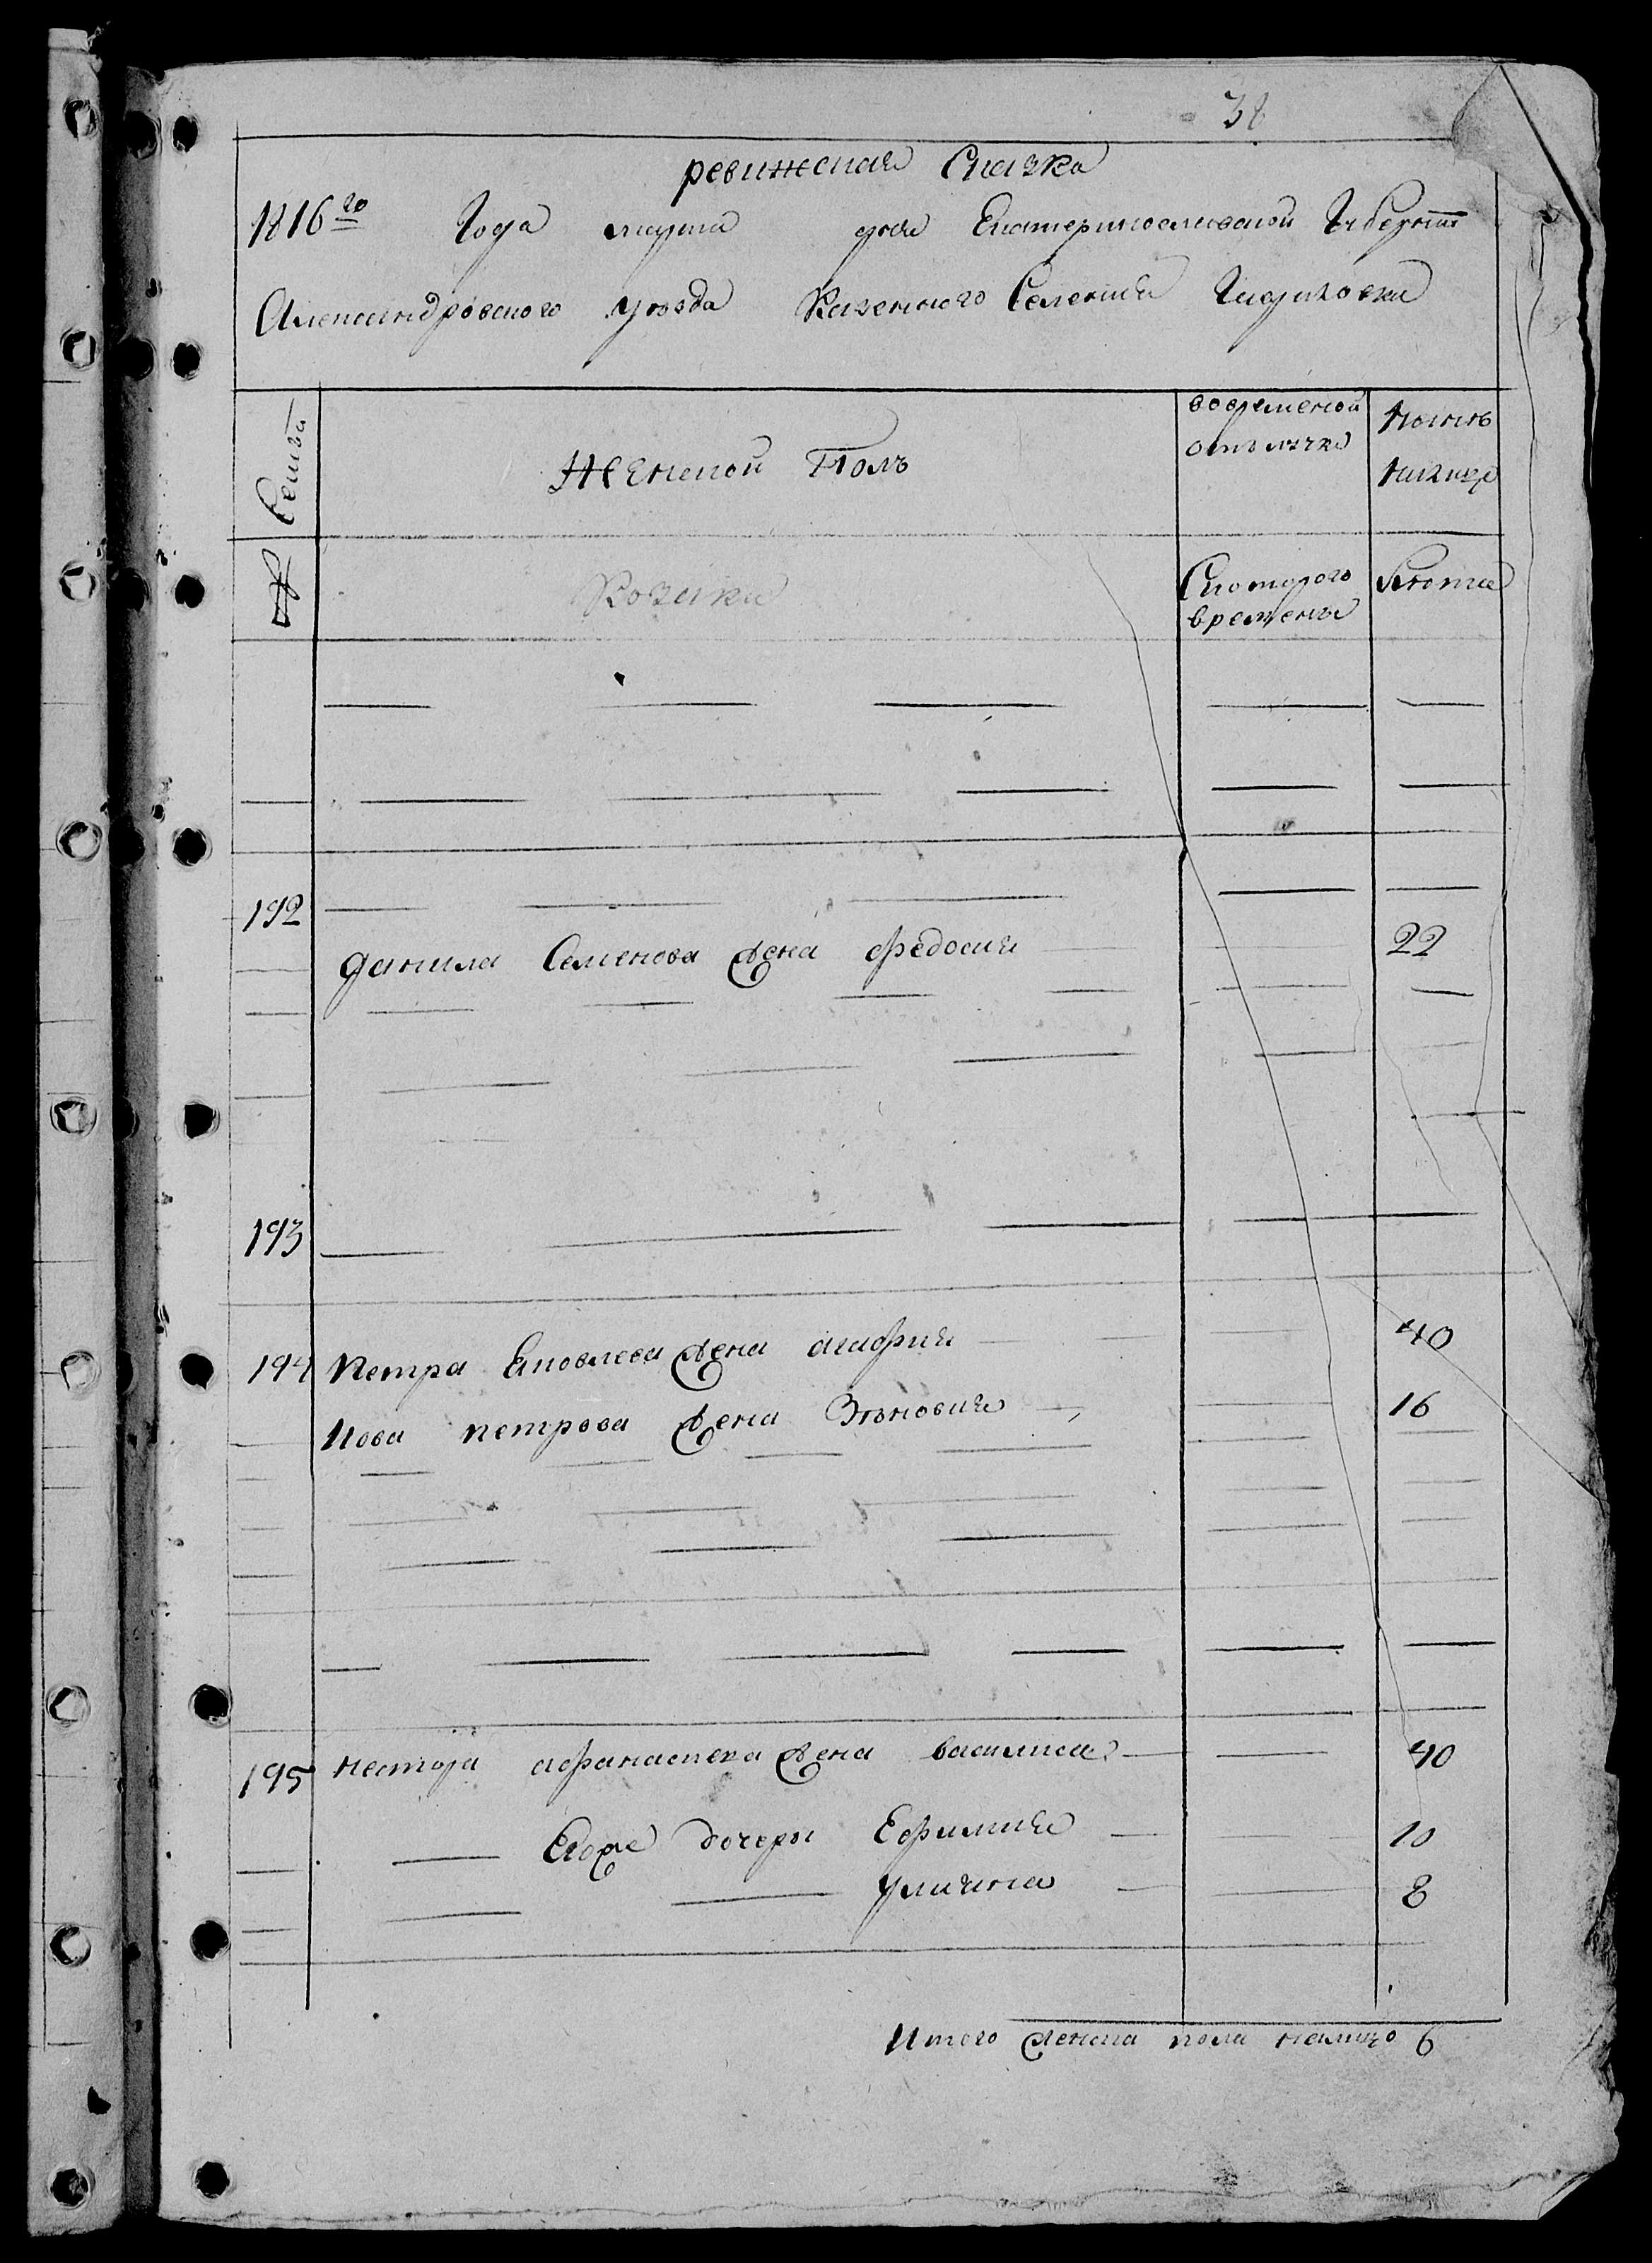 38
ревижская Сказка
1816го Года марта дня Екатеринославской Губернии
Александровского уезда Казенного Селения
Семьи
Женской Полъ
вовременой отълучке
ныне налицо
№
Козачки
Скоторого времены
Лета
192
данила Семенова жена федосия 22
193
194 петра Яковлева жена агафия 40
Иова петрова жена Зѣновия 16
195 нестора афанасиева жена василиса 40
Егоже дочеры Ефимия 10
улияна 8
Итого женска пола налицо 6